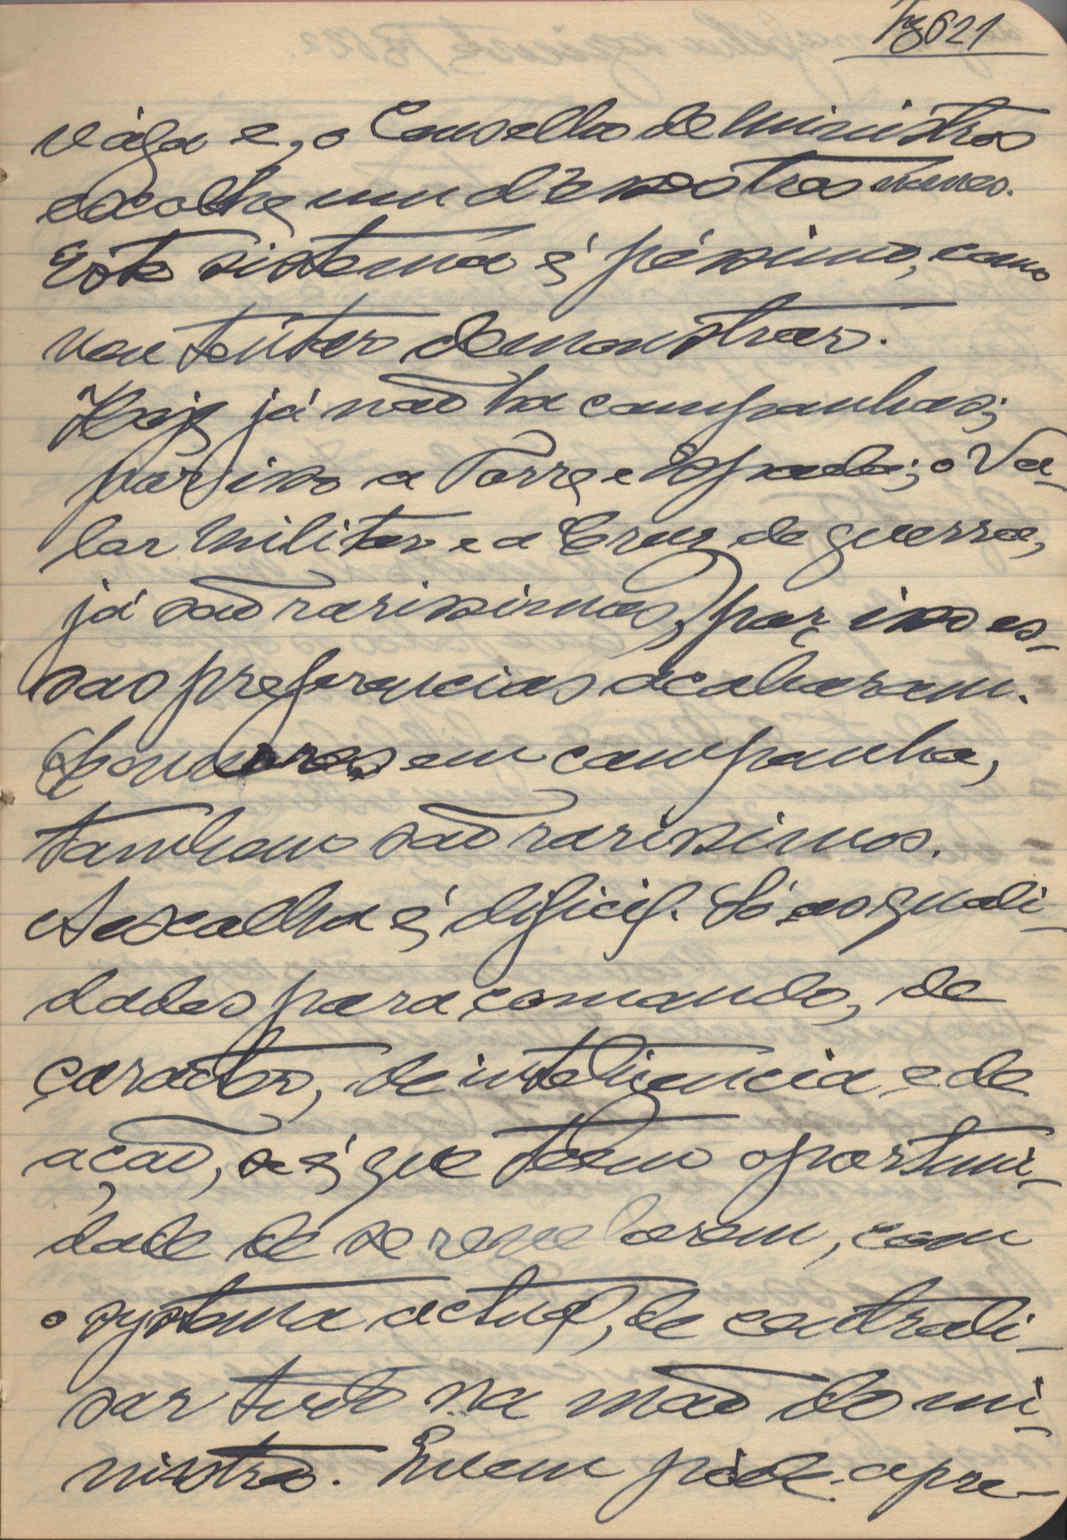 Fz 621
vága e, o Conselho de Ministros
escolhe um d'esses tres nomes.
Este sistema é péssimo, como
vou tentar demonstrar.
Hoje já não ha campanhas;
por isso a Torre e Espada; o Va-
lor Militar e a Cruz de guerra,
já são rarissimas, por isso es-
sas preferencias acabaram.
Louvores em campanha,
tambem são rarissimos.
A escolha é dificil. Só as quali-
dades para comando, de
caracter, de inteligencia e de
acção, se é que teem oportuni-
dade de se revelarem, com
o systema actual, de centrali-
sar tudo na mão do mi-
nistro. Quem póde apre-